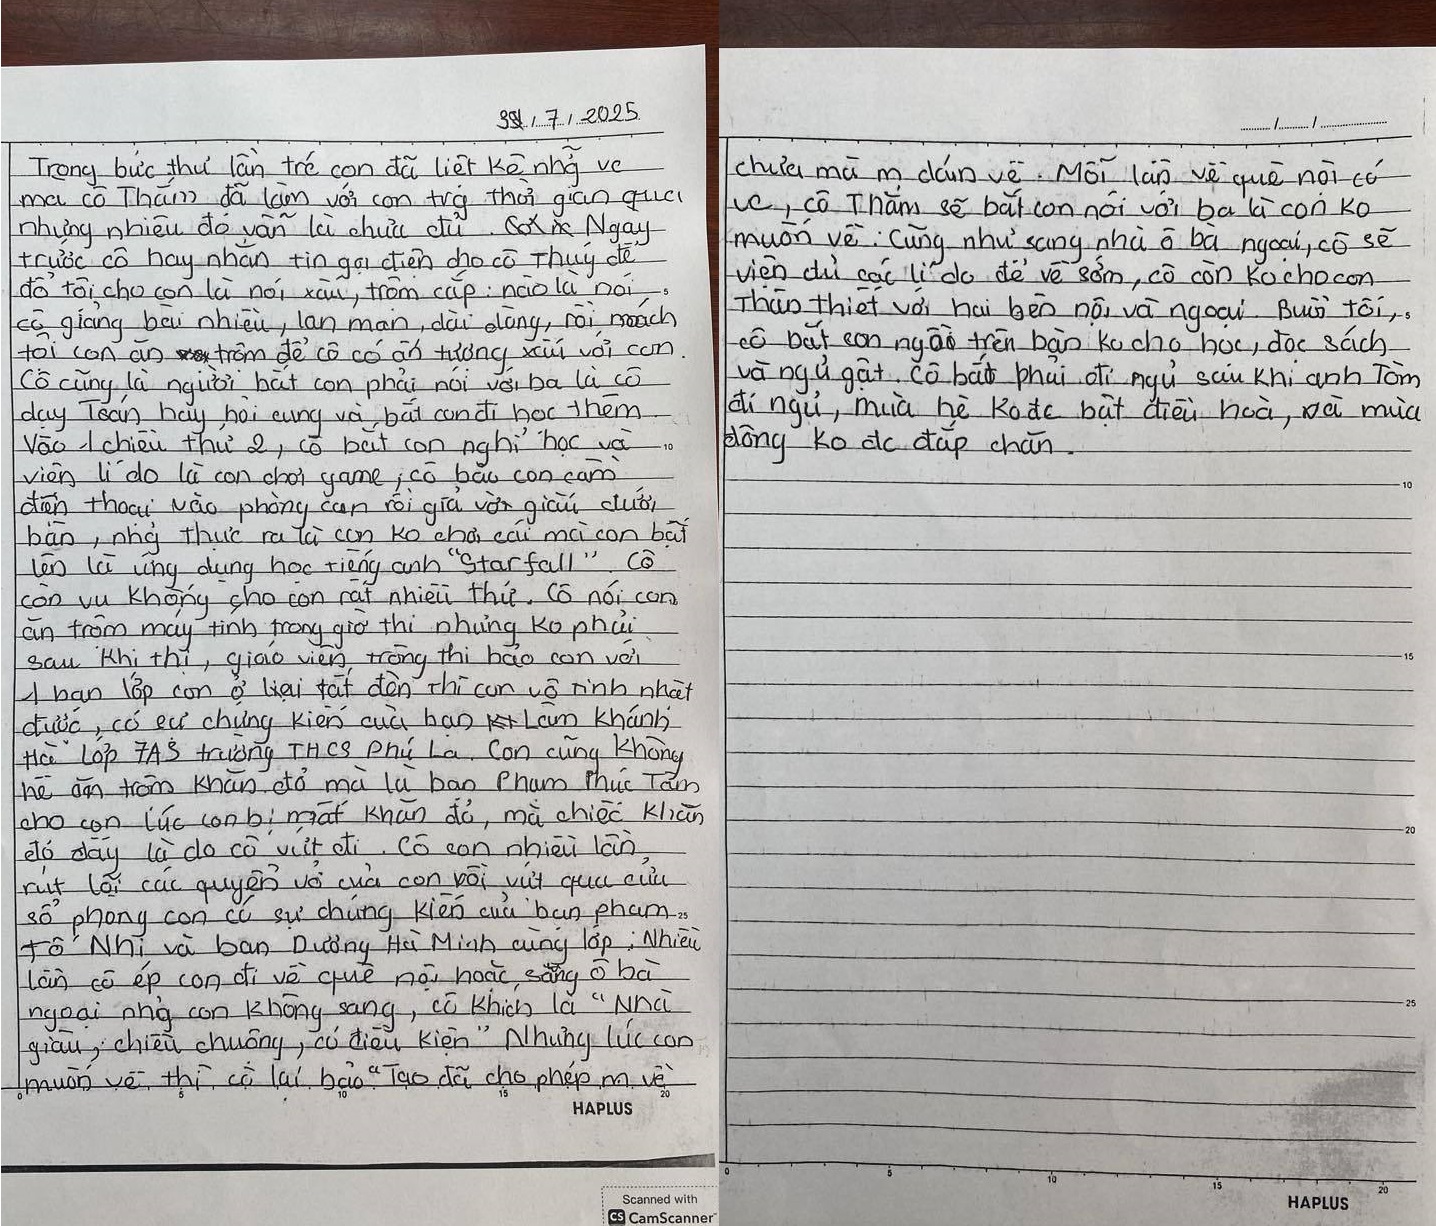 31/7/2025
Trong bức thư lần trc con đã liệt kê nhg vc
mà cô Thắm đã làm với con trg thời gian qua
nhưng nhiêu đó vẫn là chưa đủ. Ngày
trước cô hay nhắn tin gọi điện cho cô Thuý để
đổ tội cho con là nói xấu, trộm cắp: nào là nói
cô giảng bài nhiều, lan man, dài dòng, rồi mách
tội con ăn trộm để cô có ấn tượng xấu với con.
Cô cũng là người bắt con phải nói với ba là cô
dạy Toán hay hỏi cung và bắt con đi học thêm
Vào 1 chiều thứ 2, cô bắt con nghỉ học và
viện lí do là con chơi game; cô bảo con cầm
điện thoại vào phòng con rồi giả vờ giấu dưới
bàn, nhg thực ra là con ko chơi cái mà con bật
lên là ứng dụng học tiếng anh "Starfall". Cô
còn vu khống cho con rất nhiều thứ. Cô nói con
ăn trộm máy tính trong giờ thi nhưng ko phải
sau khi thi, giáo viên trông thi bảo con với
1 bạn lớp con ở lại tắt đèn thì con vô tình nhặt
được, có sự chứng kiến của bạn Lâm Khánh
Hà lớp 7A5 trường THCS Phú La. Con cũng không
hề ăn trộm khăn đỏ mà là bạn Phạm Phúc Tâm
cho con lúc con bị mất khăn đỏ, mà chiếc khăn
đó đấy là do cô vứt đi. Cô còn nhiều lần
rút lõi các quyển vở của con rồi vứt qua cửa
sổ phòng con có sự chứng kiến của bạn Phạm
Tố Nhi và bạn Dương Hà Minh cùng lớp; Nhiều
lần cô ép con đi về quê nội hoặc sang ô bà
ngoại nhg con không sang, cô khích là "Nhà
giàu, chiều chuộng, có điều kiện" Nhưng lúc con
muốn về thì cô lại bảo "Tao đã cho phép m về
HAPLUS
Scanned with
CS CamScanner
...../...../.....
chưa mà m dám về. Mỗi lần về quê nội có
vc, cô Thắm sẽ bắt con nói với ba là con ko
muốn về; Cũng như sang nhà ô bà ngoại, cô sẽ
viện đủ các lí do để về sớm, cô còn ko cho con
thân thiết với hai bên nội và ngoại. Buổi tối,
cô bắt con ngồi trên bàn ko cho học, đọc sách
và ngủ gật. Cô bắt phải đi ngủ sau khi anh Tôm
đi ngủ, mùa hè ko đc bật điều hoà, và mùa
đông ko đc đắp chăn.
HAPLUS